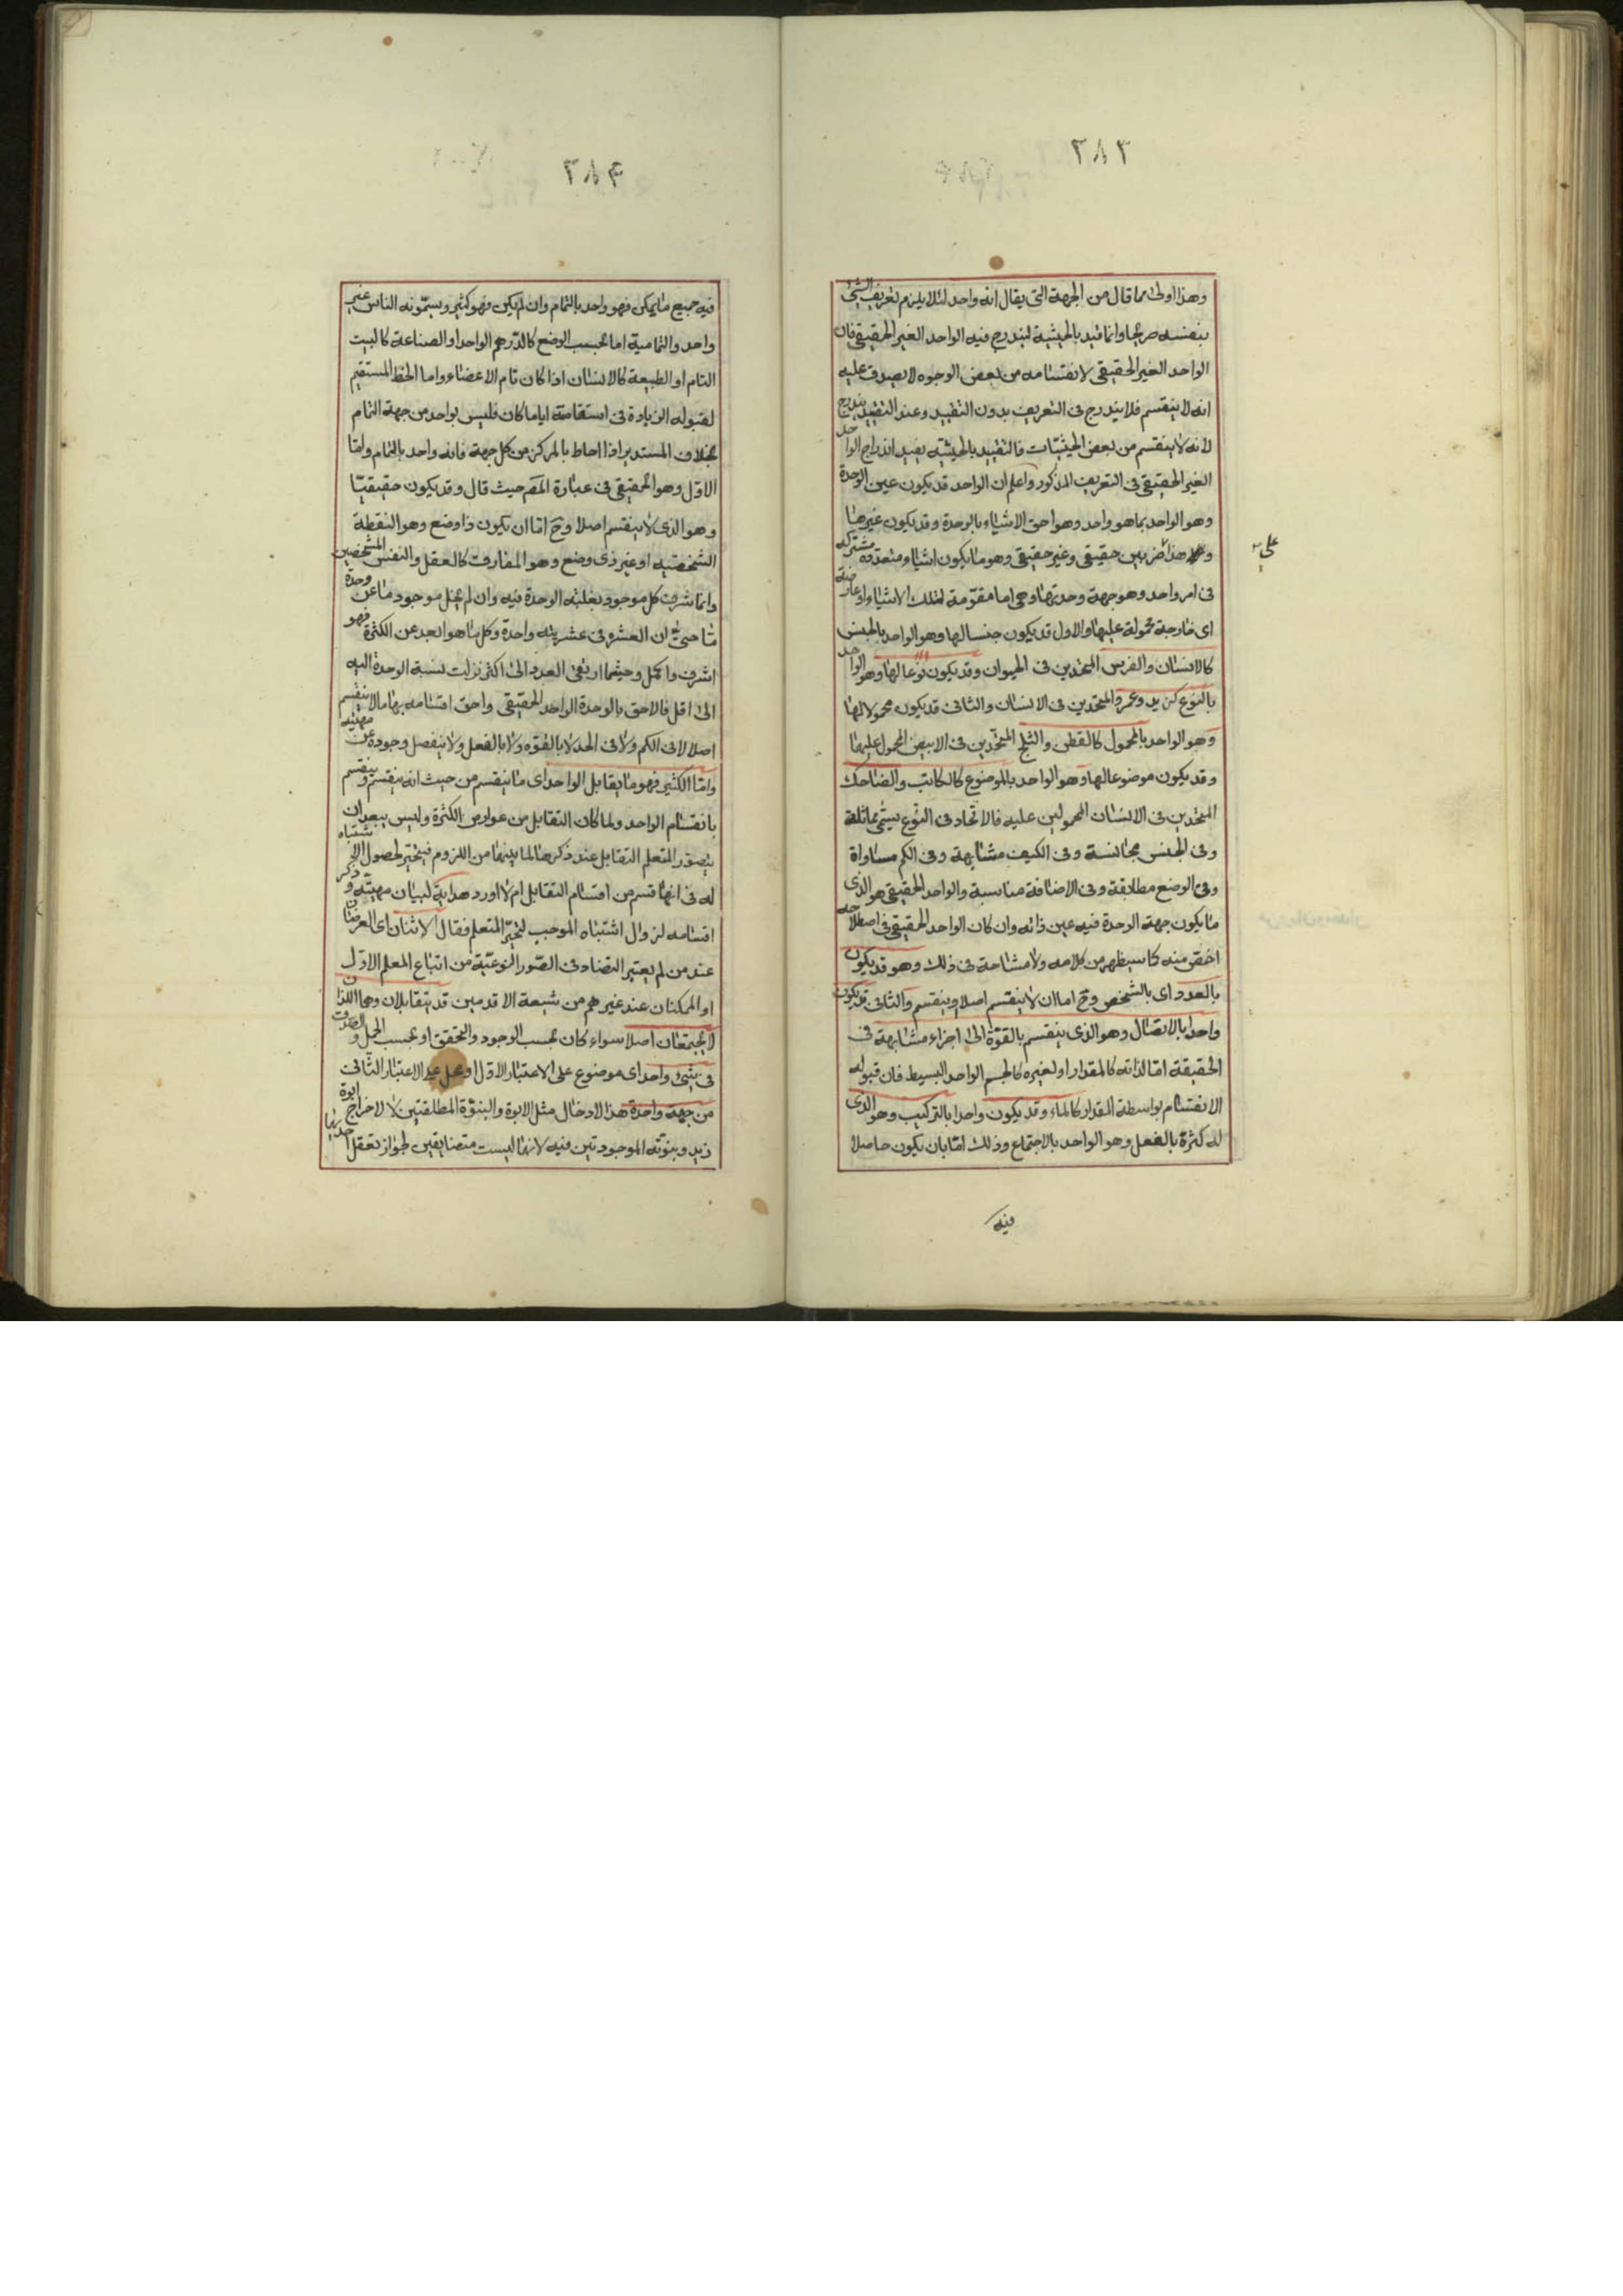 ٢٨٣
وهذا اولى مما قال من الجهة التى يقال انه واحد لئلا يلزم تعريف الشئ
بنفسه صريحا وانما قيد بالحيثية ليندرج فيه الواحد الغير الحقيقى فان
الواحد الغير الحقيقى لانقسامه من بعض الوجوه لا يصدق عليه
انه لا ينقسم فلا يندرج فى التعريف بدون التقييد وعند التقييد يندرج
لانه لا ينقسم من بعض الحيثيات فالتقييد بالحيثية يفيد اندراج الواحد
الغير الحقيقى فى التعريف المذكور واعلم ان الواحد قد يكون عين الوحدة
وهو الواحد بما هو واحد وهو احق الاشياء بالوحدة وقد يكون غيرها
وهذا ضربين حقيقى وغير حقيقى وهو ما يكون اشياء متعددة مشتركة
على
فى امر واحد وهو جهة وحدتها وهى اما مقومة لتلك الاشياء او عارضة
اى خارجة محمولة عليها والاول قد يكون جنسا لها وهو الواحد بالجنس
كالانسان والفرس المتحدين فى الحيوان وقد يكون نوعا لها وهو الواحد
بالنوع كزيد وعمرو المتحدين فى الانسان والثانى قد يكون محمولا لها
وهو الواحد بالمحمول كالقطن والثلج المتحدين فى الابيض المحمول عليهما
وقد يكون موضوعا لها وهو الواحد بالموضوع كالكاتب والضاحك
المتحدين فى الانسان المحمولين عليه فالاتحاد فى النوع يسمى مماثلة
وفى الجنس مجانسة وفى الكيف مشابهة وفى الكم مساواة
وفى الوضع مطابقة وفى الاضافة مناسبة والواحد الحقيقى هو الذى
ما يكون جهة الوحدة فيه عين ذاته وان كان الواحد الحقيقى فى اصطلاحه
اخص منه كما سيظهر من كلامه ولا مشاحة فى ذلك وهو قد يكون
بالعدد اى بالشخص وح اما ان لا ينقسم اصلا وينقسم والثانى قد يكون
واحدا بالاتصال وهو الذى ينقسم بالقوة الى اجزاء متشابهة فى
الحقيقة اما لذاته كالمقدار او لغيره كالجسم الواحد البسيط فان قبوله
الانقسام بواسطة المقدار كالماء وقد يكون واحدا بالتركيب وهو الذى
له كثرة بالفعل وهو الواحد بالاجتماع وذلك اما بان يكون حاصلا
فيه
٢٨۴
فيه جميع ما يمكن فهو واحد بالتمام وان لم يكن فهو كثير ويسمونه الناس غير
واحد والتمامية اما بحسب الوضع كالدرهم الواحد او الصناعة كالبيت
التام او الطبيعة كالانسان اذا كان تام الاعضاء واما الخط المستقيم
لقبوله الزيادة فى استقامته اياما كان فليس بواحد من جهة التمام
بخلاف المستدير اذا احاط بالمركز من كل جهة فانه واحد بالتمام واما
الاول وهو الحقيقى فى عبارة المص حيث قال وقد يكون حقيقيا
وهو الذى لا ينقسم اصلا وح اما ان يكون ذا وضع وهو النقطة
الشخصية او غير ذى وضع وهو المفارق كالعقل والنفس المشخصين
وانما شرف كل موجود بغلبة الوحدة فيه وان لم يخل موجود ما عن وحدة
ما حتى ان العشرة فى عشريته واحدة وكل ما هو ابعد عن الكثرة فهو
اشرف واكمل وحيثما ارتقى العدد الى اكثر نزلت نسبة الوحدة اليه
الى اقل فالاحق بالوحدة الواحد الحقيقى واحق اقسامه بها ما لا ينقسم
اصلا لا فى الكم ولا فى الحد لا بالقوه ولا بالفعل ولا ينفصل وجوده عن مهيته
واما الكثير فهو ما يقابل الواحد اى ما ينقسم من حيث انه ينقسم وينقسم
بانقسام الواحد ولما كان التقابل من عوارض الكثرة وليس يبعد ان
يتصور المتعلم التقابل عند ذكرها لما بينهما من اللزوم فيتحير لحصول الاشتباه
له فى انها قسم من اقسام التقابل ام لا اورد هداية لبيان مهيته وذكر
اقسامه لزوال اشتباه الموجب لتحير المتعلم فقال الاثنان اى العرضان
عند من لم يعتبر التضاد فى الصور النوعية من اتباع المعلم الاول
او الممكنان عند غيرهم من شيعة الاقدمين قد يتقابلان وهما اللذان
لا يجتمعان اصلا سواء كان بحسب الوجود والتحقق او بحسب الحمل والصدق
فى شئ واحد اى موضوع على الاعتبار الاول او محل على الاعتبار الثانى
من جهة واحدة هذا لادخال مثل الابوة والبنوة المطلقتين لا لاخراج ابوة
زيد وبنوته الموجودتين فيه لانها ليست متضايفين لجواز تعقل احديهما